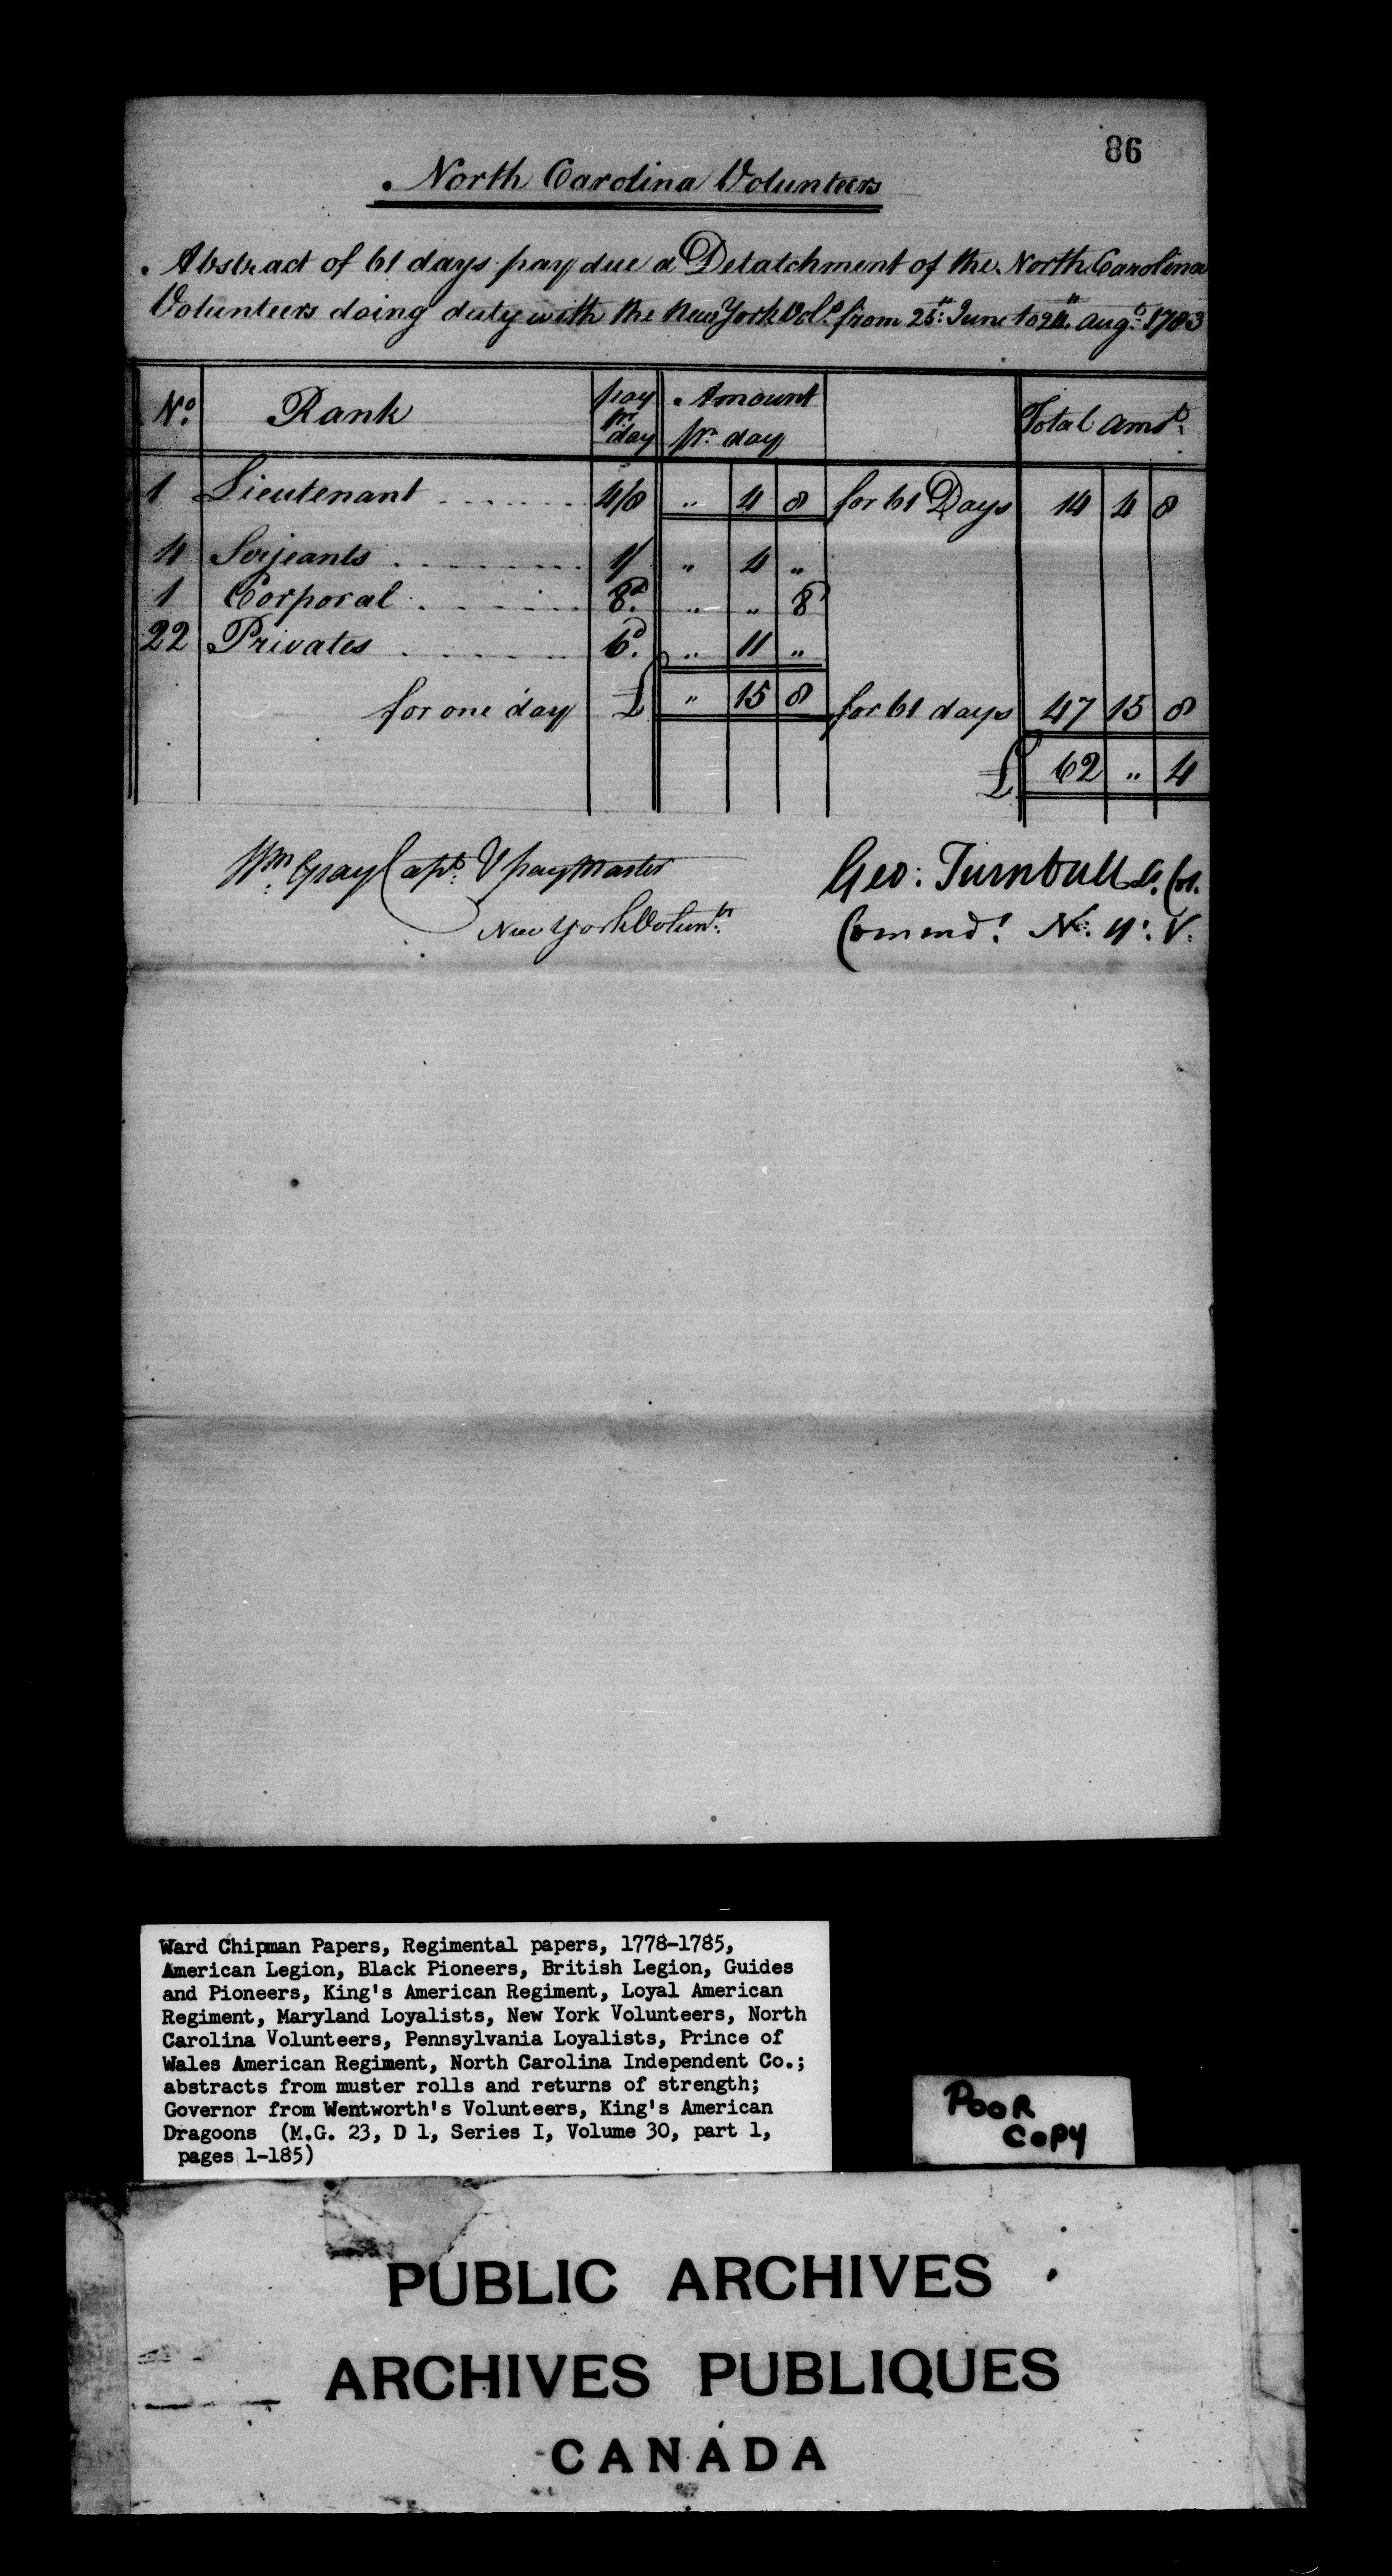 86
North Carolina Volunteers
Abstract of 61 days pay due a Detatchment of the North Carolina
Volunteers doing duty with the New York Vols. from 25th June to 24th Augt. 1783
No. Rank pay pr. day Amount pr. day Total Amot.
1 Lieutenant 4/8 " 4 8 for 61 Days 14 4 8
4 Serjeants 1/ " 4 "
1 Corporal 8d. " " 8
22 Privates 6d. " 11 "
for one day £ " 15 8 for 61 days 47 15 8
£ 62 " 4
Wm. Gray Capt. & paymaster
New York Volunts.
Geo: Turnbull Lt. Col.
Commdt. N: Y: V:
Ward Chipman Papers, Regimental papers, 1778-1785,
American Legion, Black Pioneers, British Legion, Guides
and Pioneers, King's American Regiment, Loyal American
Regiment, Maryland Loyalists, New York Volunteers, North
Carolina Volunteers, Pennsylvania Loyalists, Prince of
Wales American Regiment, North Carolina Independent Co.;
abstracts from muster rolls and returns of strength;
Governor from Wentworth's Volunteers, King's American
Dragoons (M.G. 23, D 1, Series I, Volume 30, part 1,
pages 1-185)
POOR
COPY
PUBLIC ARCHIVES
ARCHIVES PUBLIQUES
CANADA